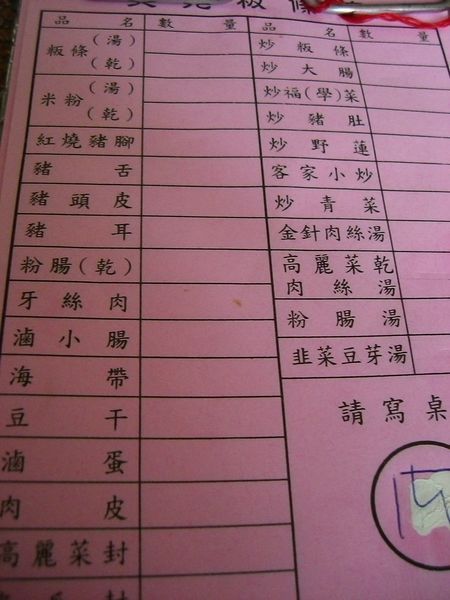 粄條
品名 數量
粄條 (湯)
(乾)
米粉 (湯)
(乾)
紅燒豬腳
豬舌
豬頭皮
豬耳
粉腸(乾)
牙絲肉
滷小腸
海帶
豆干
滷蛋
肉皮
高麗菜封
封
品名 數量
炒粄條
炒大腸
炒福(學)菜
炒豬肚
炒野蓮
客家小炒
炒青菜
金針肉絲湯
高麗菜乾
肉絲湯
粉腸湯
韭菜豆芽湯
請寫桌